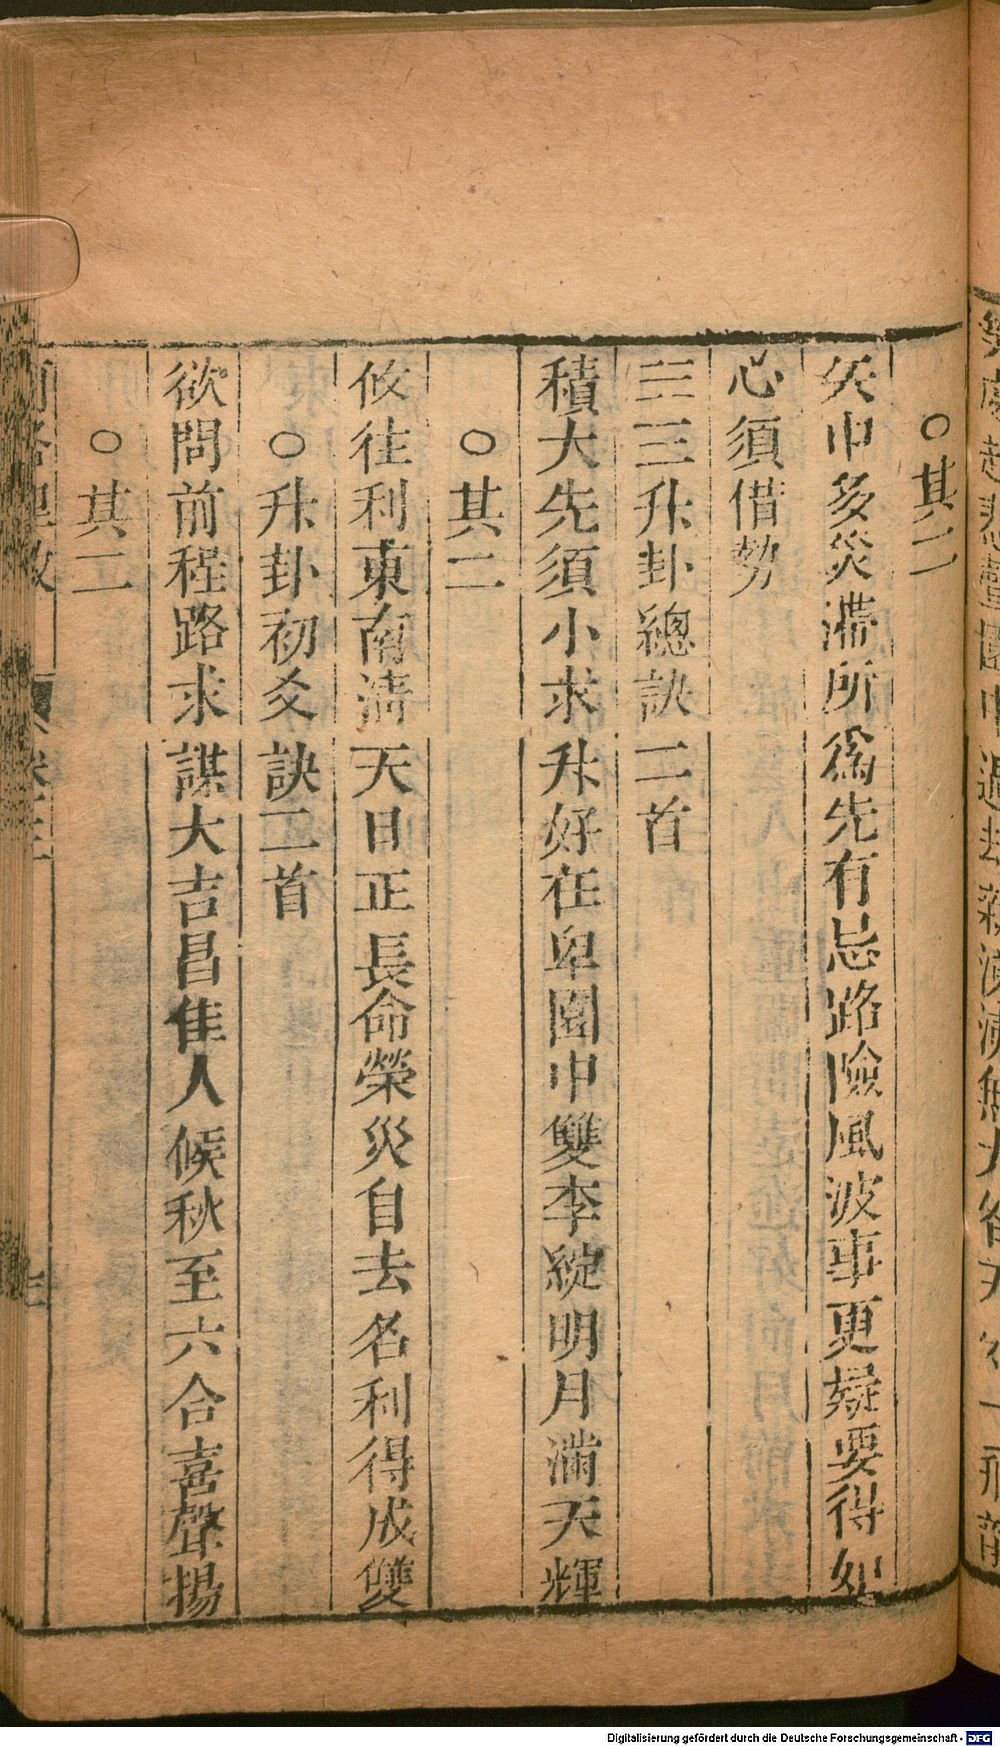 ○其二
矢中多災滯所爲先有忌路險風波事更疑要得如
心須借勢
☷☴升卦總訣二首
積大先須小求升好在卑園中雙李綻明月滿天輝
○其二
攸往利東南淸天日正長命榮災自去名利得成雙
○升卦初爻訣二首
欲問前程路求謀大吉昌佳人候秋至六合喜聲揚
○其二
Digitalisierung gefördert durch die Deutsche Forschungsgemeinschaft - DFG